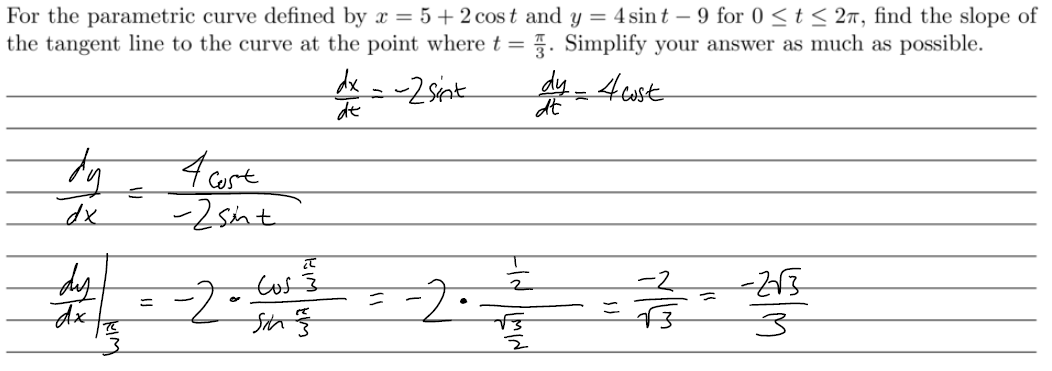 For the parametric curve defined by x = 5 + 2 cos t and y = 4 sin t − 9 for 0 ≤ t ≤ 2π, find the slope of
the tangent line to the curve at the point where t = π/3. Simplify your answer as much as possible.
dx/dt = -2 sint    dy/dt = 4 cost
dy/dx = 4 cost / -2 sint
dy/dx |π/3 = -2 · cos π/3 / sin π/3 = -2 · (1/2) / (√3/2) = -2/√3 = -2√3/3